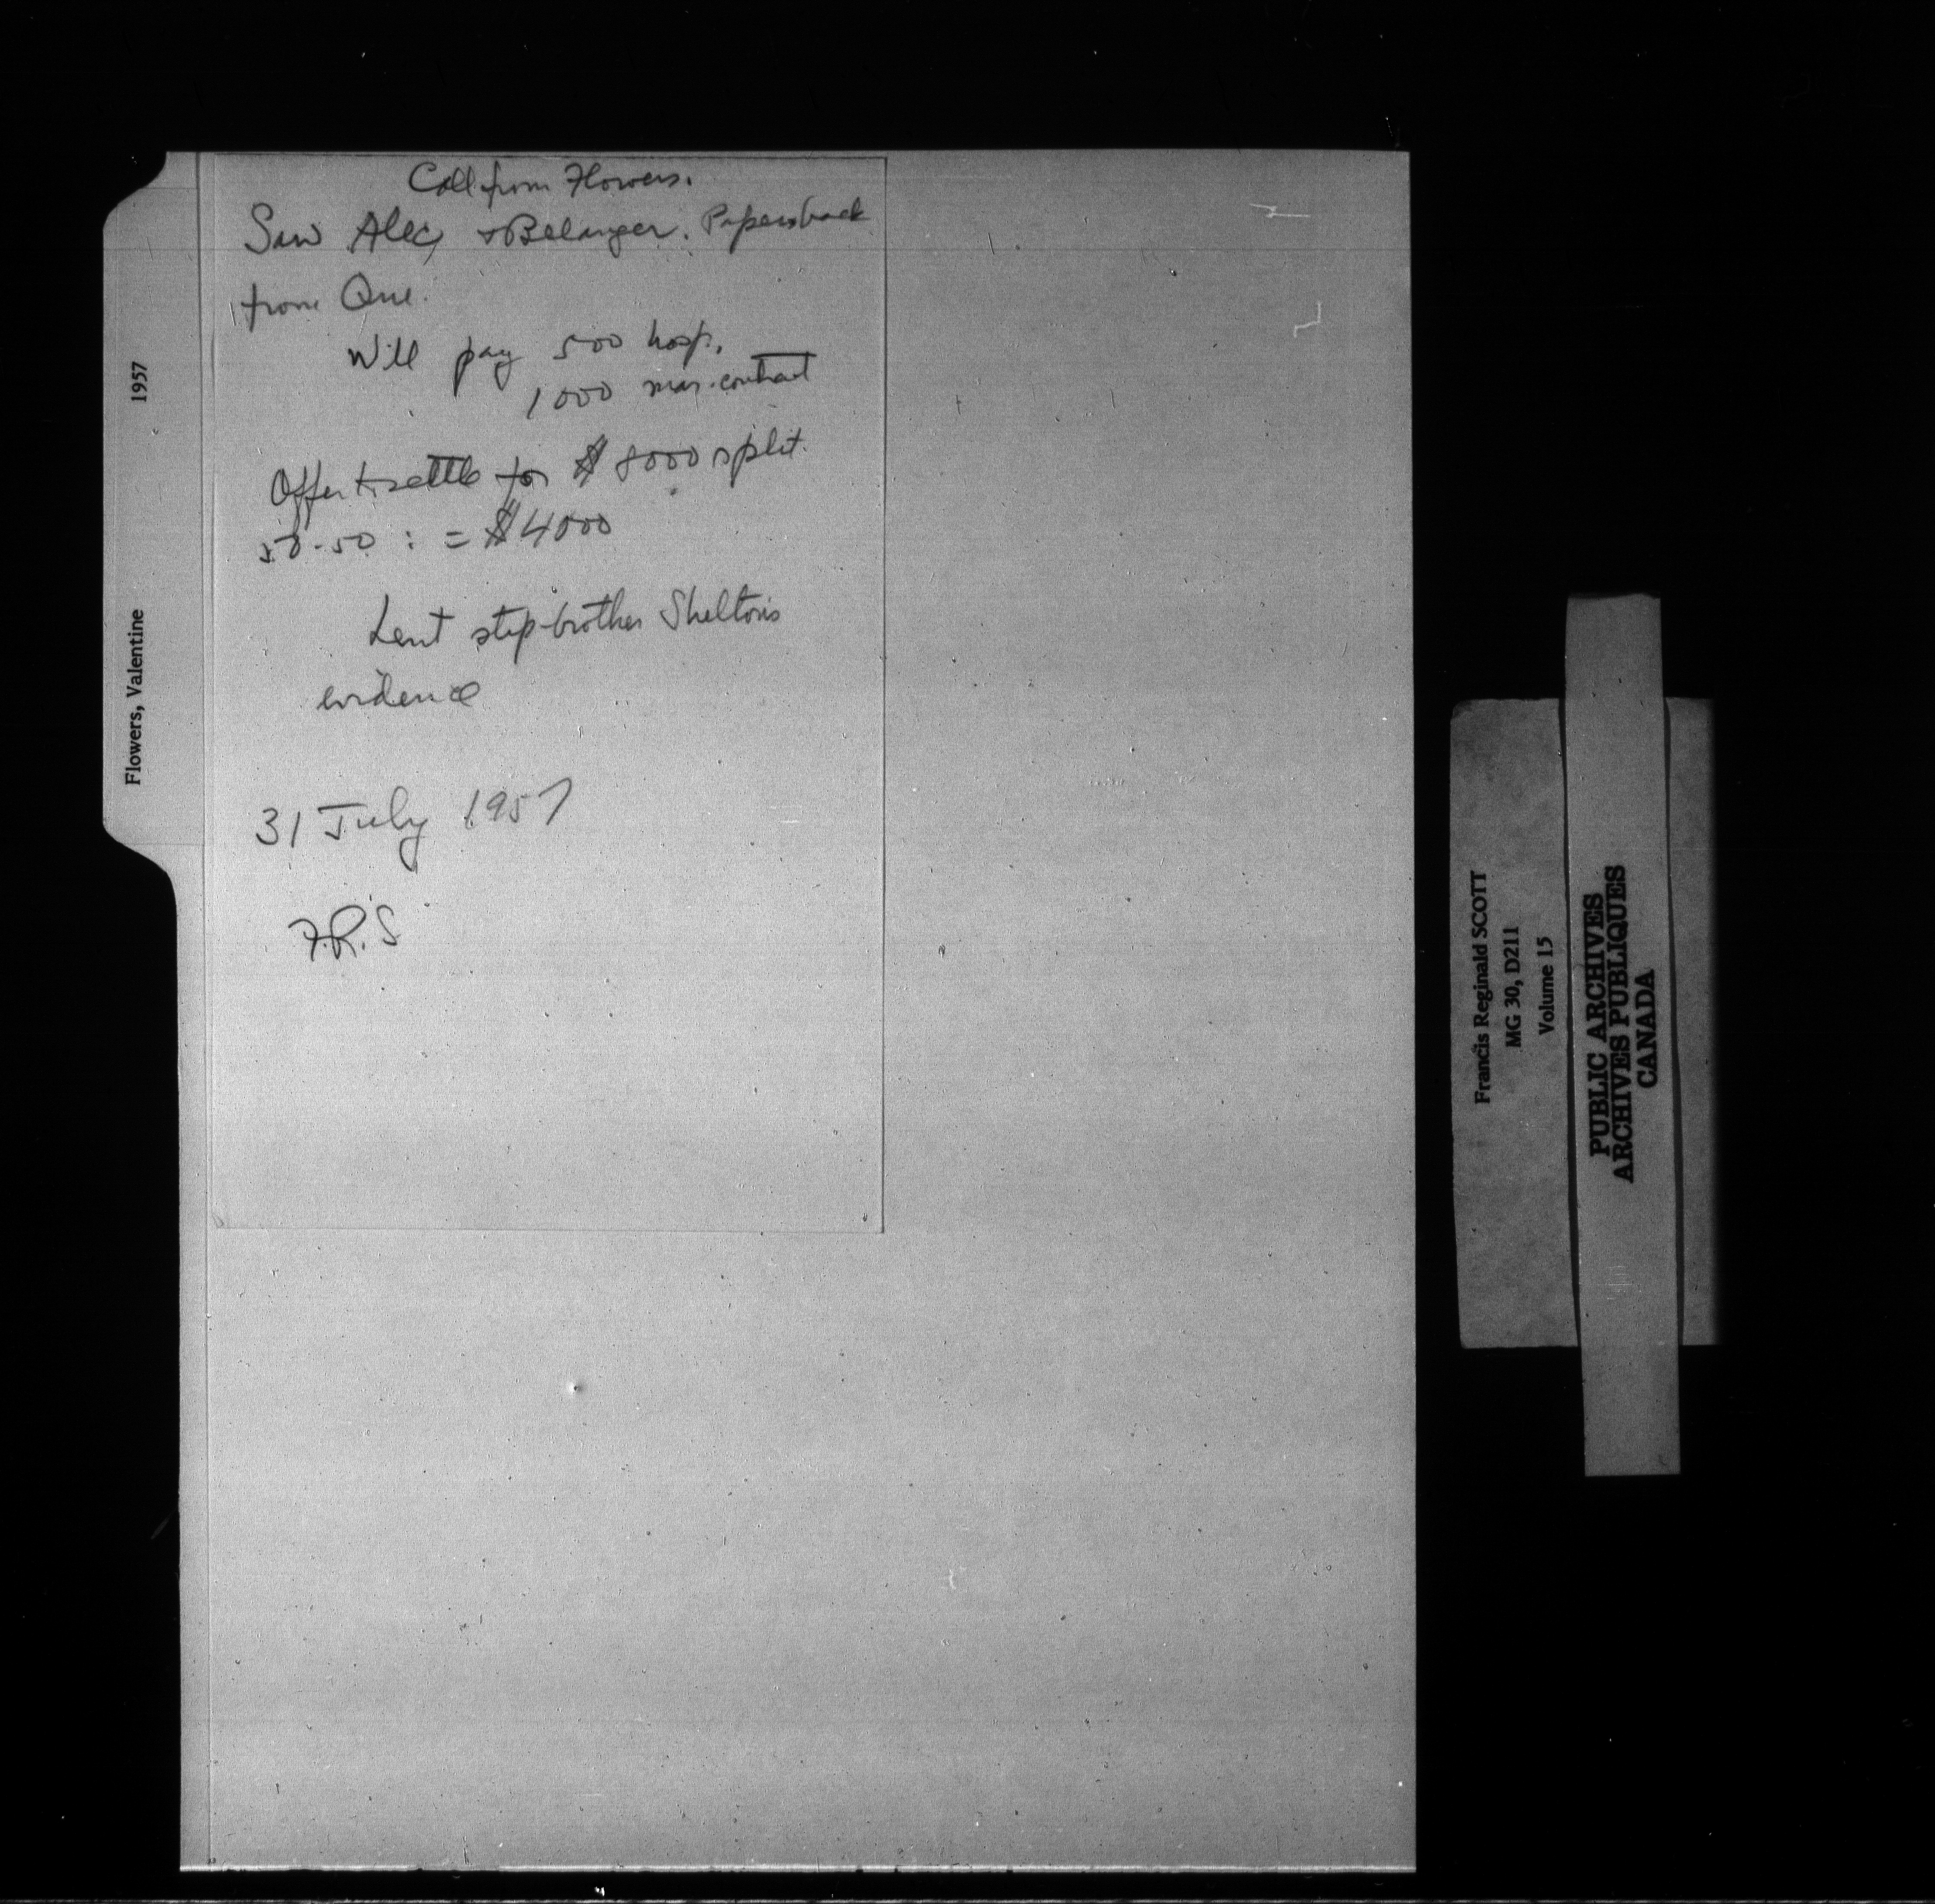 Call from Flowers.
Saw Alec, & Belanger. Papers back
from Que.
Will pay 500 hosp.
1000 mar. contract
Offer to settle for $8000 split.
50-50 : = $4000
Lent step-brother Shelton's
evidence
31 July 1957
F.R.S
Flowers, Valentine 1957
Francis Reginald SCOTT
MG 30, D211
Volume 15
PUBLIC ARCHIVES
ARCHIVES PUBLIQUES
CANADA